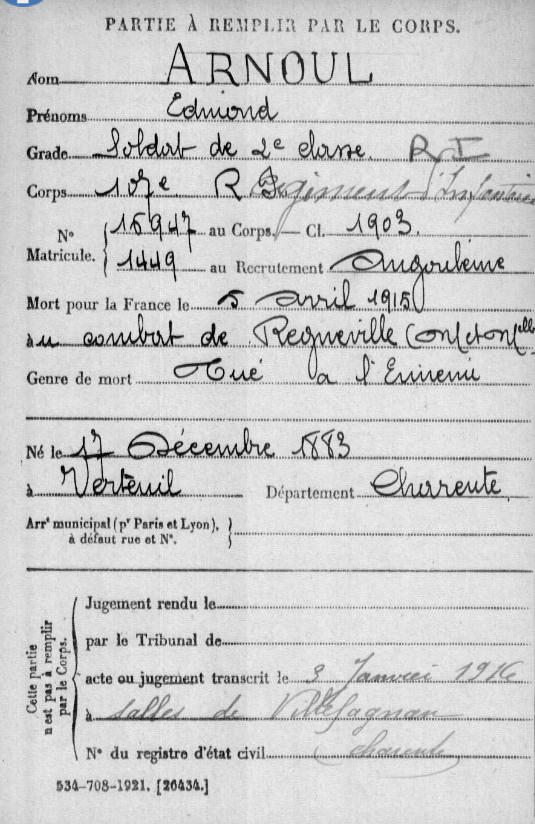 PARTIE À REMPLIR PAR LE CORPS.
Nom ARNOUL
Prénoms Edmond
Grade Soldat de 2e classe. R I
Corps 107e R Régiment d'Infanterie
N° Matricule. { 15947 au Corps. — Cl. 1903.
1449 au Recrutement Angoulême
Mort pour la France le 5 Avril 1915
au combat de Regneville (Mt et Mlle
Genre de mort Tué à l'Ennemi
Né le 17 Décembre 1883
à Verteuil Département Charente.
Arrt municipal (pr Paris et Lyon), }
à défaut rue et N°.
Cette partie n'est pas à remplir par le Corps.
Jugement rendu le
par le Tribunal de
acte ou jugement transcrit le 3 Janvier 1916
à Salles de Villefagnan
N° du registre d'état civil Charente
534-708-1921. [26434.]